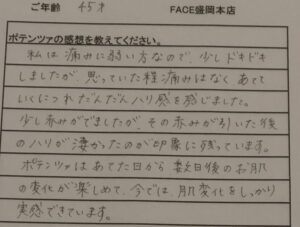 ご年齢 45才 FACE盛岡本店
ポテンツァの感想を教えてください。
私は痛みに弱い方なので、少しドキドキ
しましたが、思っていた程痛みはなく、あてて
いくにつれだんだんハリ感を感じました。
少し赤みがでましたが、その赤みが引いた後
のハリが凄かったのが印象に残っています。
ポテンツァはあてた日から数日後のお肌
の変化が楽しめて、今では、肌変化をしっかり
実感できています。